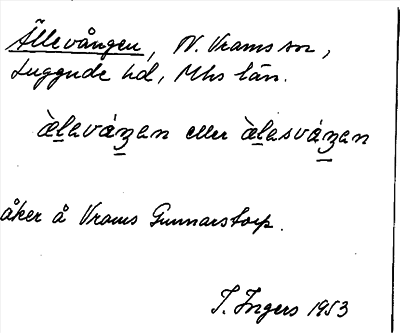 Ällevången, N. Vrams sn,
Luggude hd, Mhs län.
àlavázan eller àlasvázan
åker å Vrams Gunnarstorp.
I. Ingers 1953